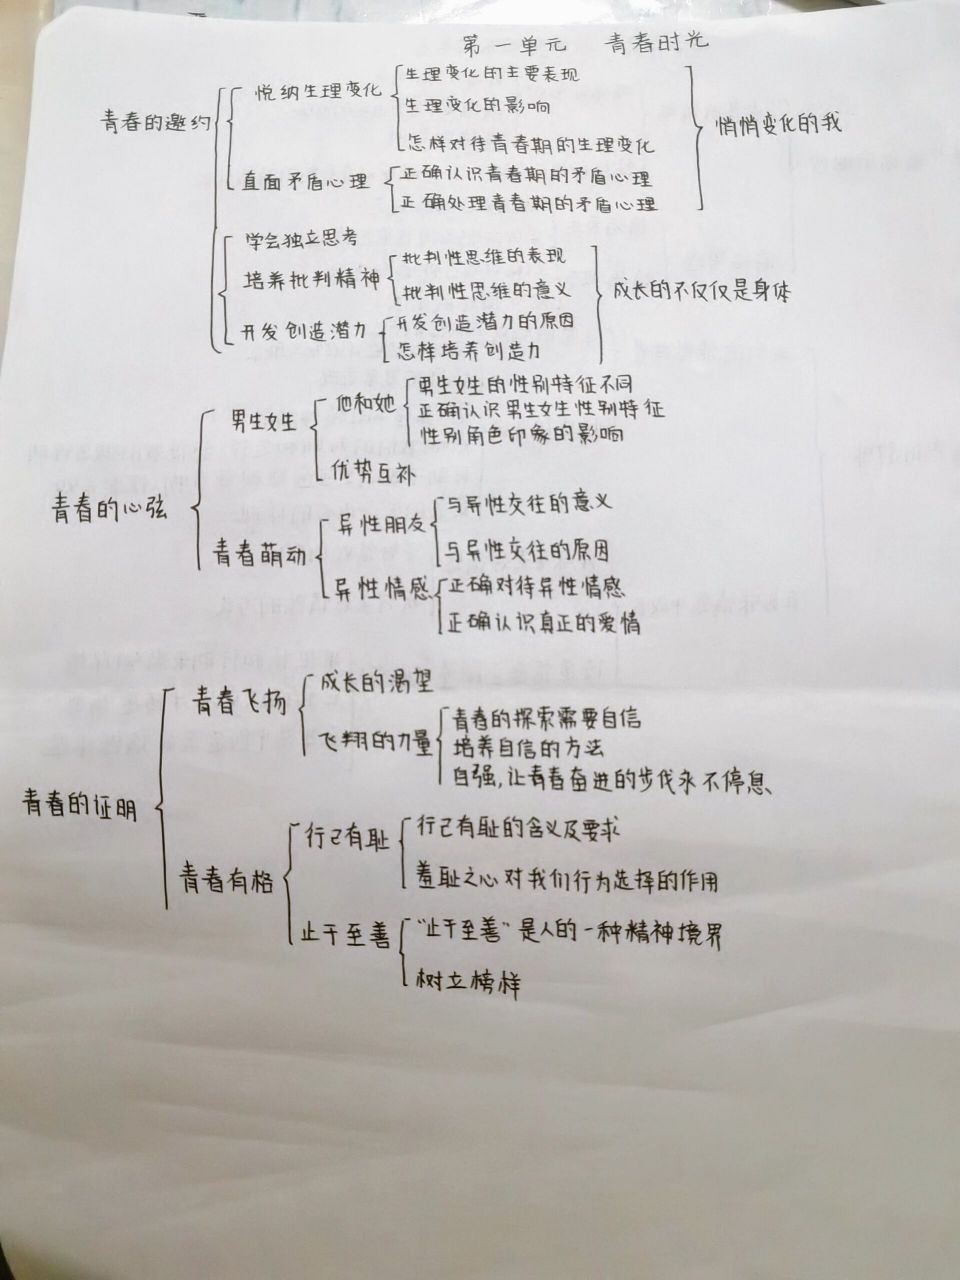 第一单元 青春时光
青春的邀约
悦纳生理变化
生理变化的主要表现
生理变化的影响
怎样对待青春期的生理变化
直面矛盾心理
正确认识青春期的矛盾心理
正确处理青春期的矛盾心理
悄悄变化的我
学会独立思考
培养批判精神
批判性思维的表现
批判性思维的意义
开发创造潜力
开发创造潜力的原因
怎样培养创造力
成长的不仅仅是身体
青春的心弦
男生女生
他和她
男生女生的性别特征不同
正确认识男生女生性别特征
性别角色印象的影响
优势互补
青春萌动
异性朋友
与异性交往的意义
与异性交往的原因
异性情感
正确对待异性情感
正确认识真正的爱情
青春的证明
青春飞扬
成长的渴望
飞翔的力量
青春的探索需要自信
培养自信的方法
自强,让青春奋进的步伐永不停息、
青春有格
行己有耻
行己有耻的含义及要求
羞耻之心对我们行为选择的作用
止于至善
“止于至善”是人的一种精神境界
树立榜样